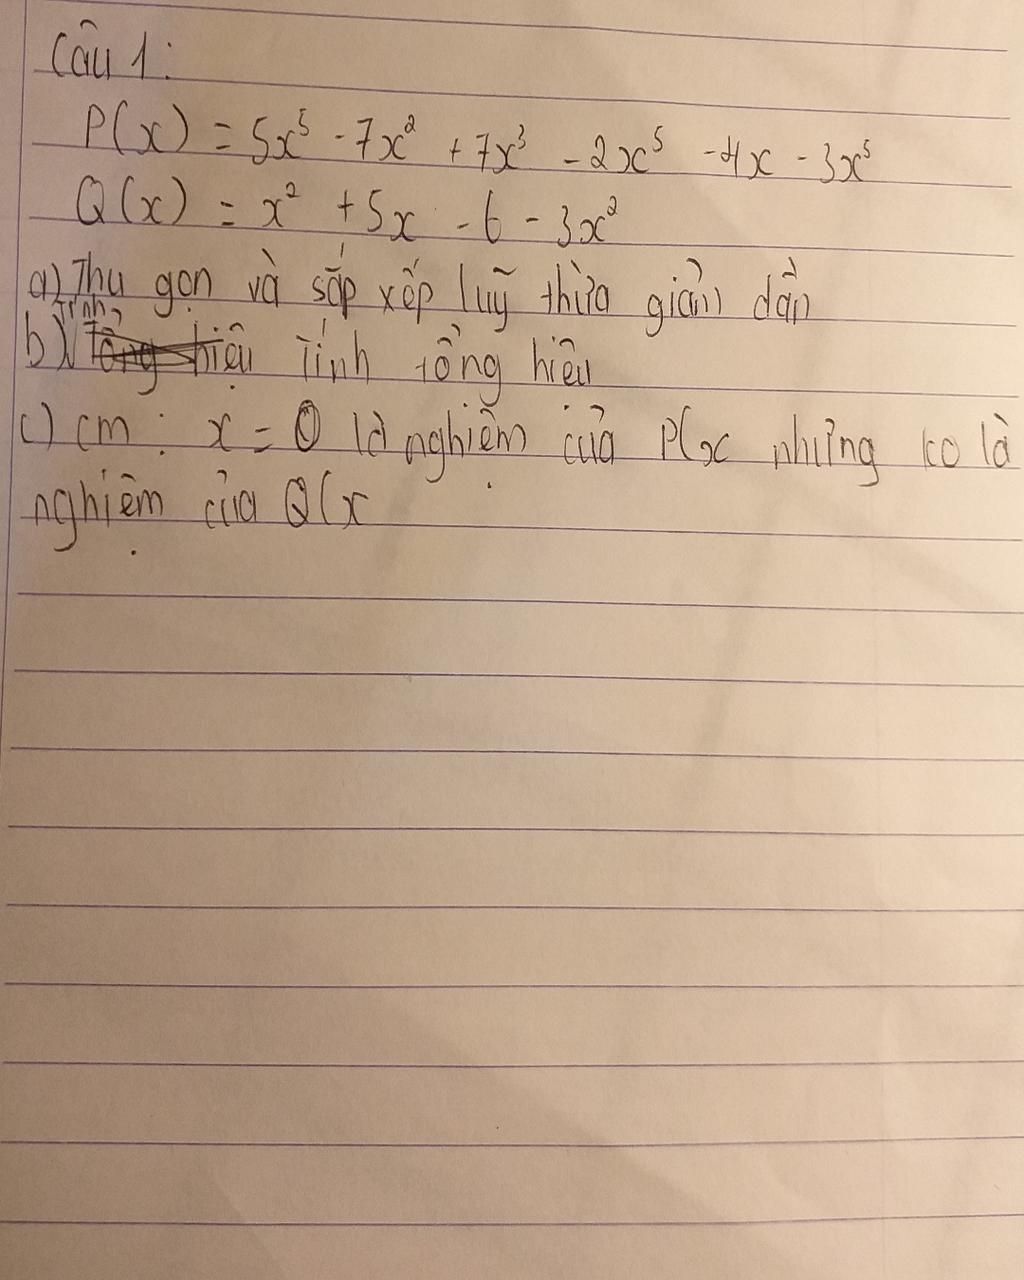 Câu 1:
P(x) = 5x⁵ - 7x² + 7x³ - 2x⁵ - 4x - 3x⁵
Q(x) = x² + 5x - 6 - 3x²
a) Thu gọn và sắp xếp luỹ thừa giảm dần
b) Tính tổng hiệu
c) cm: x = 0 là nghiệm của P(x nhưng ko là
nghiệm của Q(x